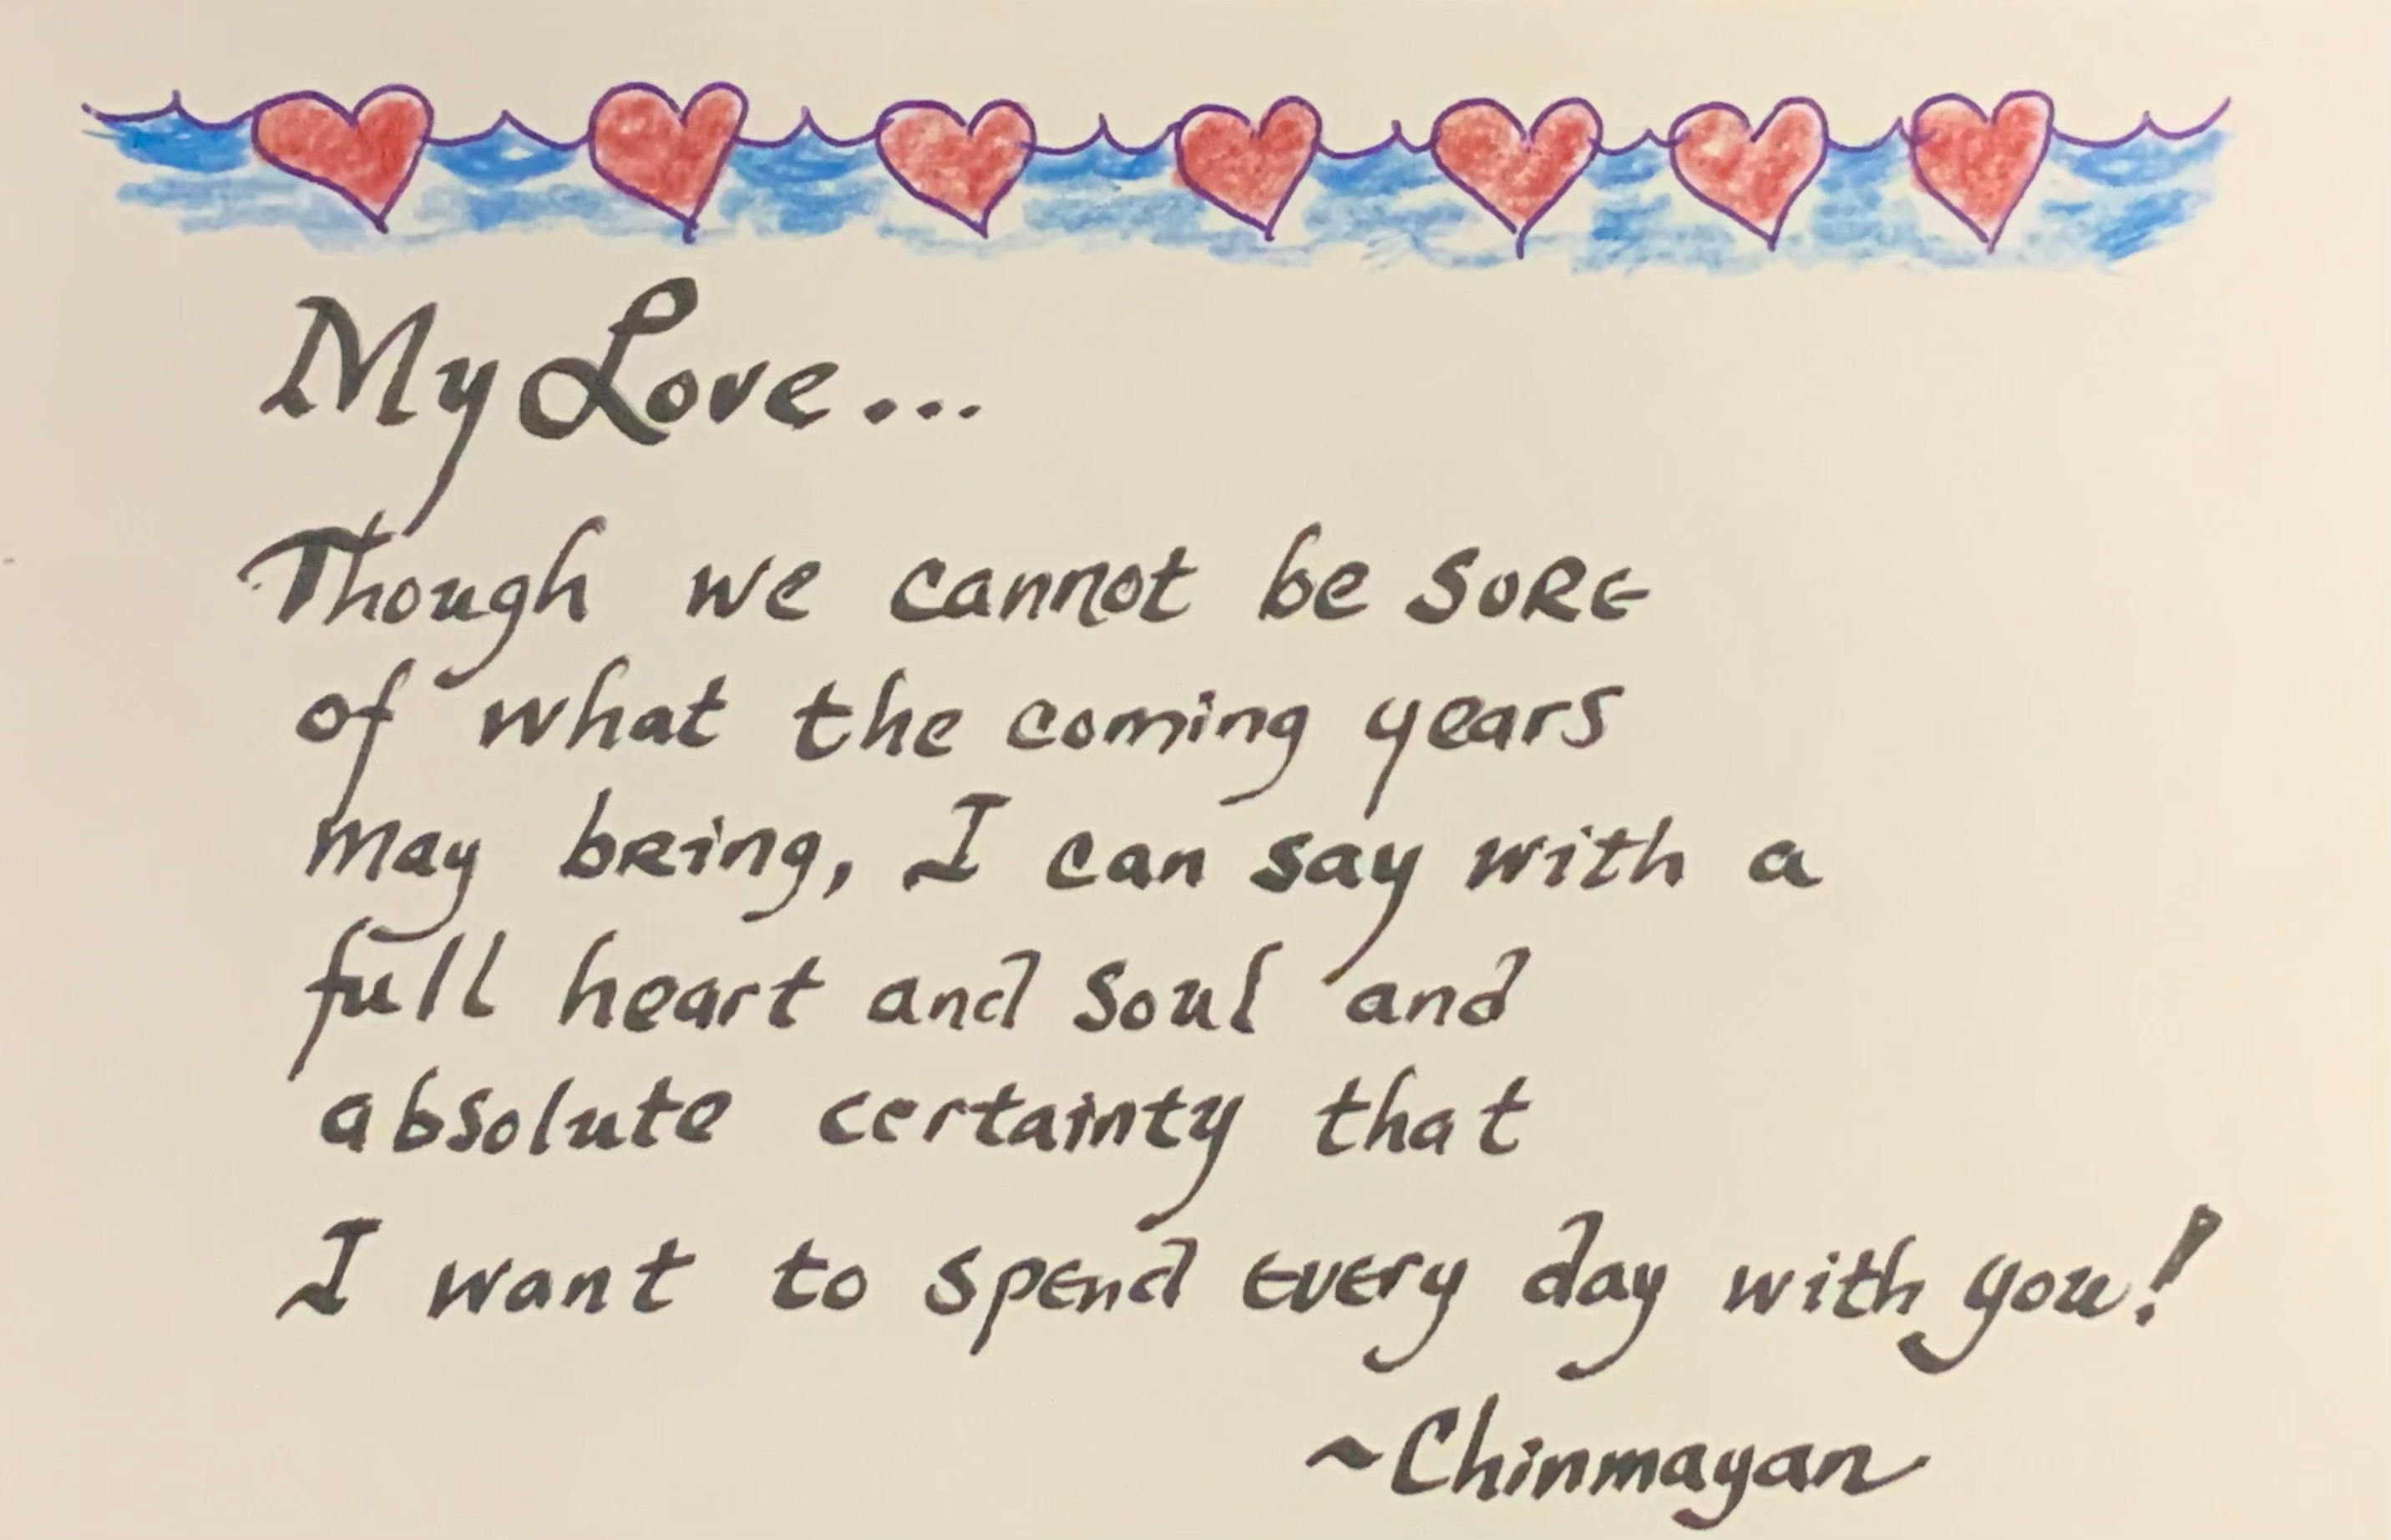 My Love...
Though we cannot be SURE
of what the coming years
may bring, I can say with a
full heart and soul and
absolute certainty that
I want to spend every day with you!
~Chinmayan